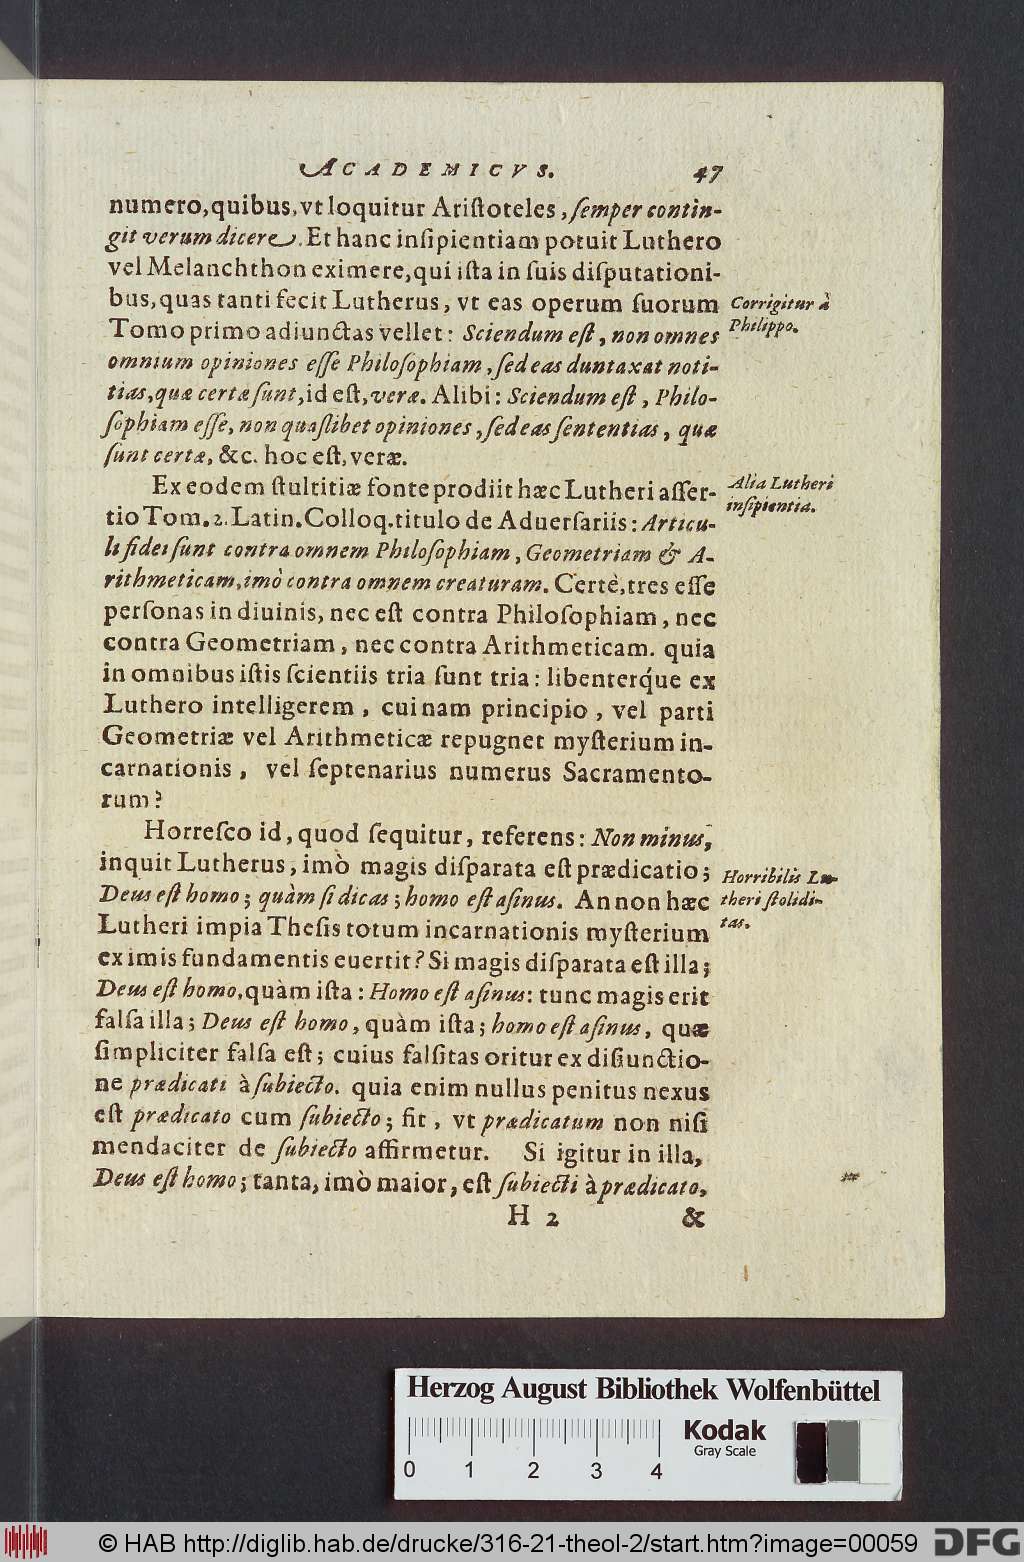 ACADEMICVS. 47
numero, quibus, vt loquitur Ariſtoteles, ſemper contin-
git verum dicere. Et hanc inſipientiam potuit Luthero
vel Melanchthon eximere, qui iſta in ſuis diſputationi-
bus, quas tanti fecit Lutherus, vt eas operum ſuorum
Tomo primo adiunctas vellet: Sciendum eſt, non omnes
omnium opiniones eſſe Philoſophiam, ſed eas duntaxat noti-
tias, quæ certæ ſunt, id eſt, veræ. Alibi: Sciendum eſt, Philo-
ſophiam eſſe, non quaſlibet opiniones, ſed eas ſententias, quæ
ſunt certæ, &c. hoc eſt, veræ.
Corrigitur à
Philippo.
Ex eodem ſtultitiæ fonte prodiit hæc Lutheri aſſer-
tio Tom. 2. Latin. Colloq. titulo de Aduerſariis: Articu-
li fidei ſunt contra omnem Philoſophiam, Geometriam & A-
rithmeticam, imò contra omnem creaturam. Certè, tres eſſe
perſonas in diuinis, nec eſt contra Philoſophiam, nec
contra Geometriam, nec contra Arithmeticam. quia
in omnibus iſtis ſcientiis tria ſunt tria: libenterq́ue ex
Luthero intelligerem, cuinam principio, vel parti
Geometriæ vel Arithmeticæ repugnet myſterium in-
carnationis, vel ſeptenarius numerus Sacramento-
rum?
Alia Lutheri
inſipientia.
Horreſco id, quod ſequitur, referens: Non minus,
inquit Lutherus, imò magis diſparata eſt prædicatio;
Deus eſt homo; quàm ſi dicas; homo eſt aſinus. An non hæc
Lutheri impia Theſis totum incarnationis myſterium
ex imis fundamentis euertit? Si magis diſparata eſt illa;
Deus eſt homo, quàm iſta: Homo eſt aſinus: tunc magis erit
falſa illa; Deus eſt homo, quàm iſta; homo eſt aſinus, quæ
ſimpliciter falſa eſt; cuius falſitas oritur ex diſiunctio-
ne prædicati à ſubiecto. quia enim nullus penitus nexus
eſt prædicato cum ſubiecto; fit, vt prædicatum non niſi
mendaciter de ſubiecto affirmetur. Si igitur in illa,
Deus eſt homo; tanta, imò maior, eſt ſubiecti à prædicato,
Horribilis Lu-
theri ſtolidi-
tas.
H 2 &
Herzog August Bibliothek Wolfenbüttel
Kodak
Gray Scale
0 1 2 3 4
© HAB http://diglib.hab.de/drucke/316-21-theol-2/start.htm?image=00059
DFG